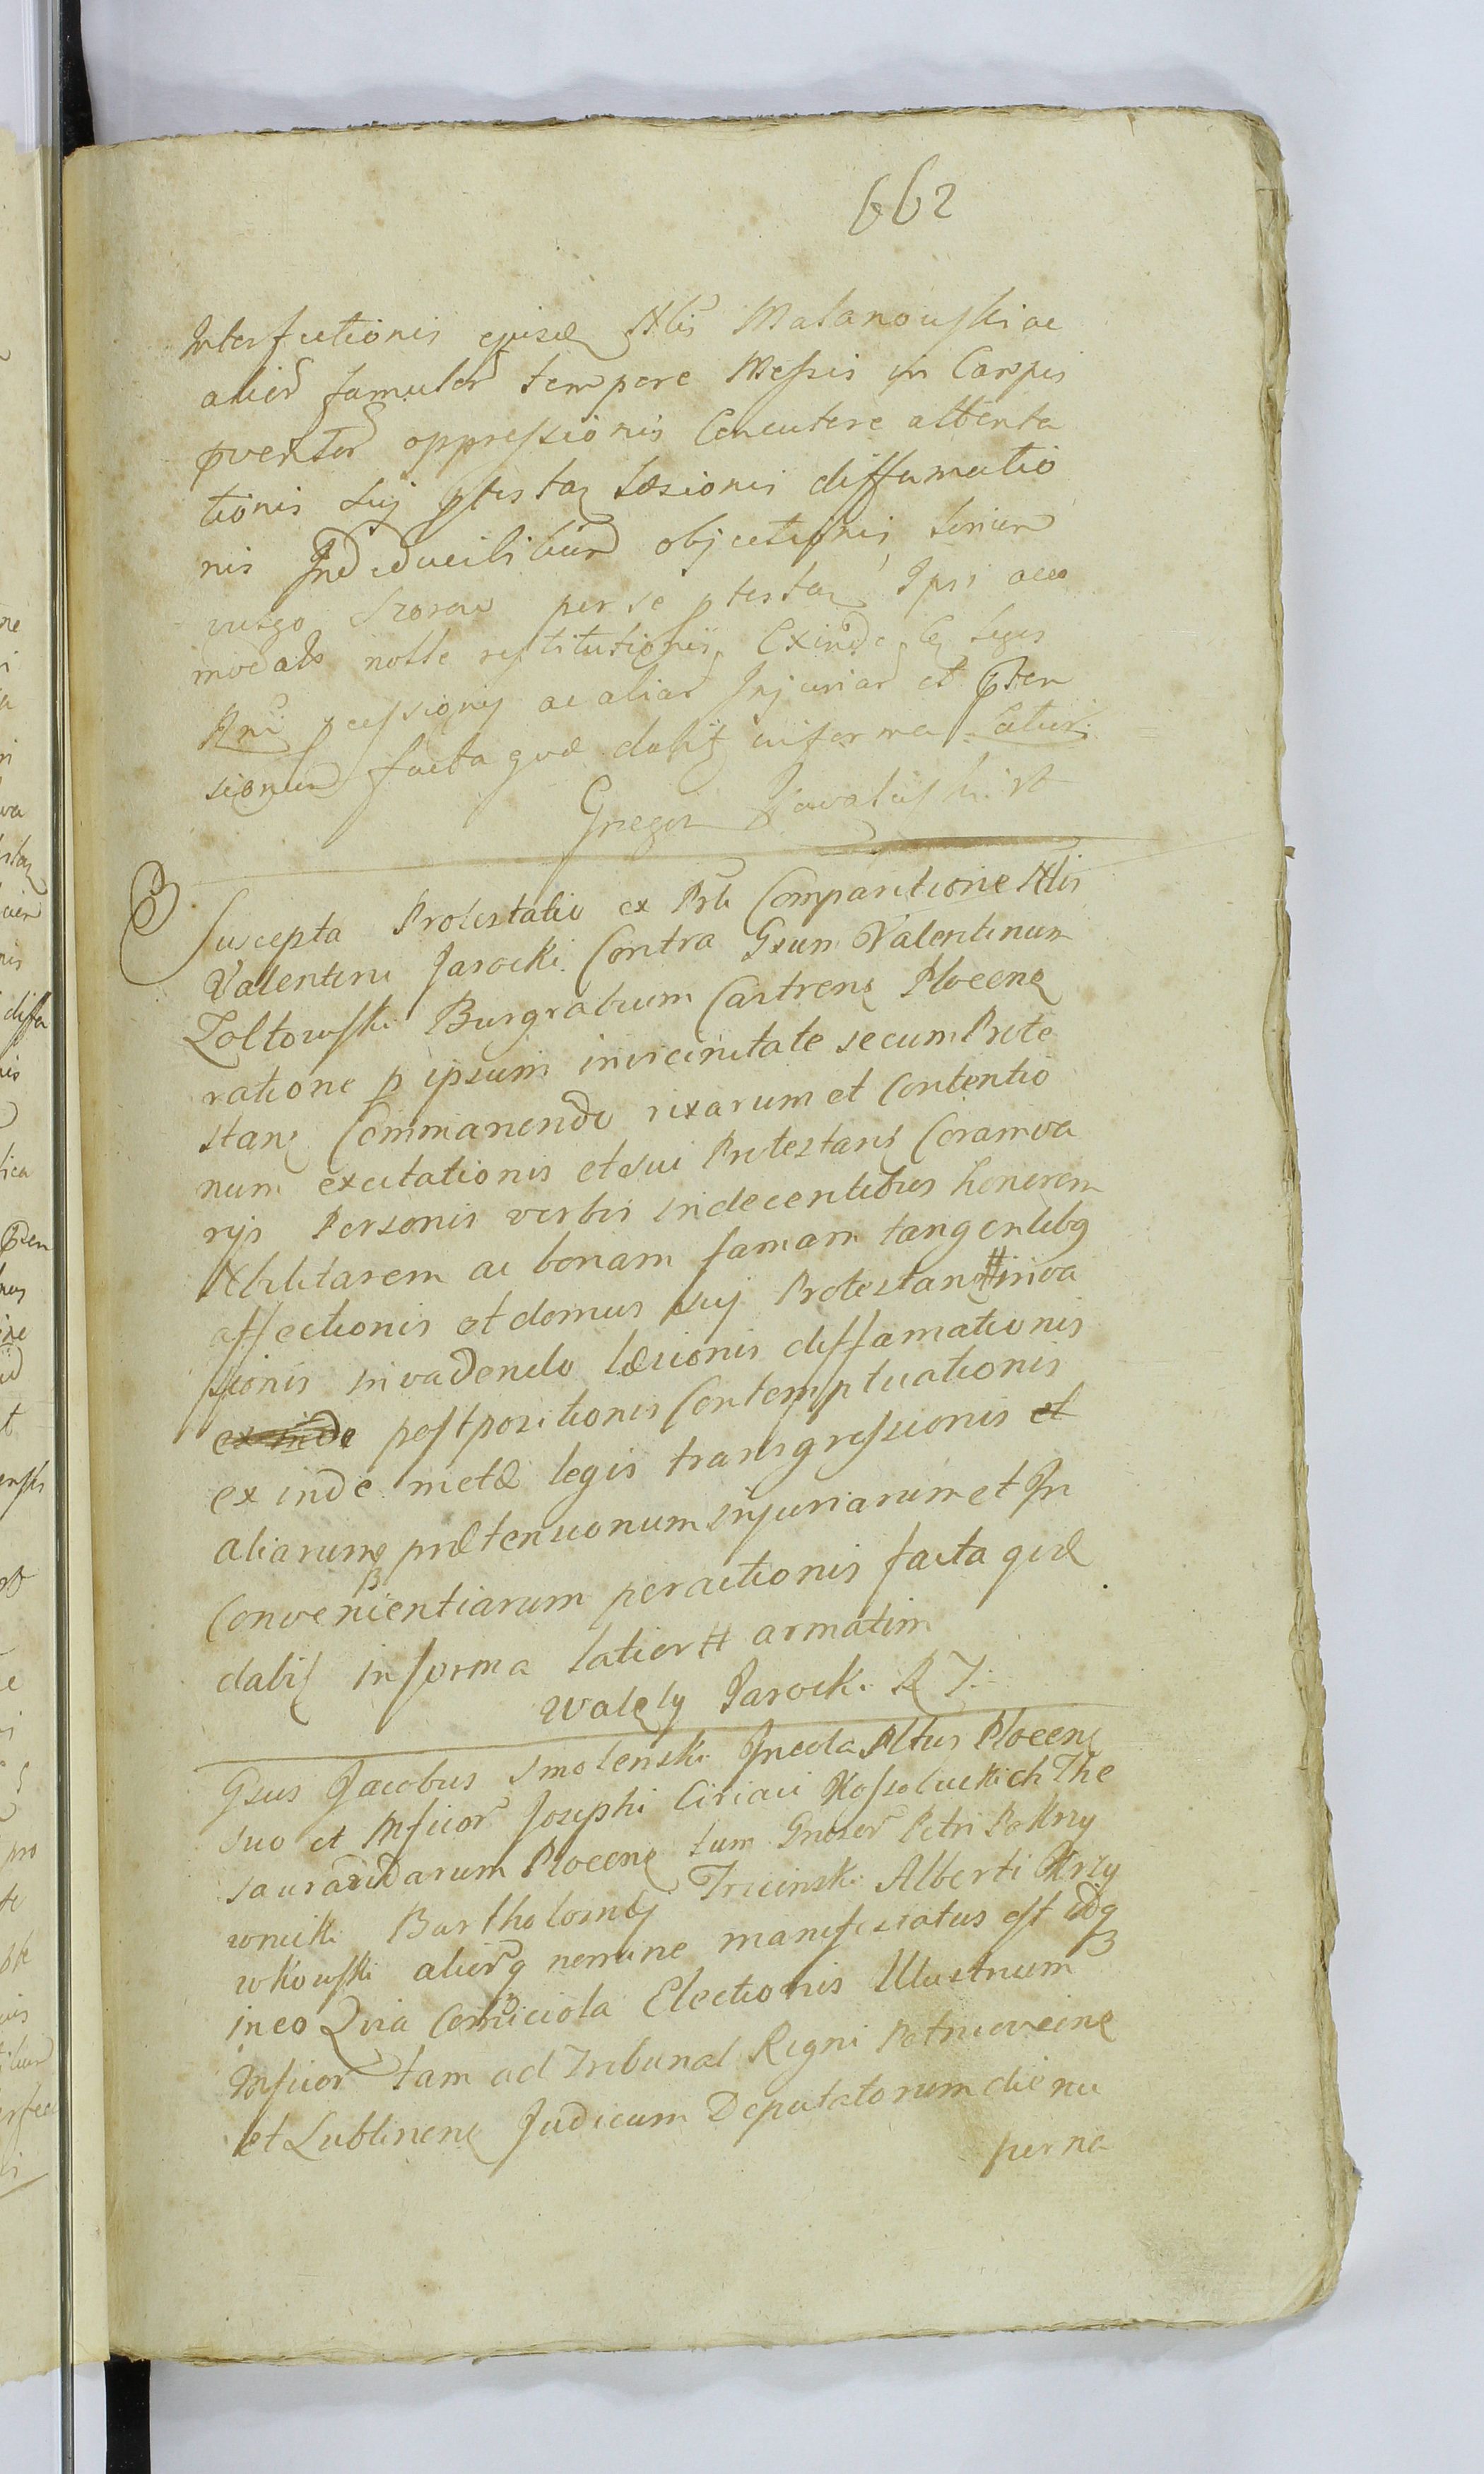 662
Interfectionis ejusdem Nlis Malanowski ac
alior famulor tempore Messis in Campis
oppressionis Concutere attenta
tionis suj ptestan læsionis diffamatio
nis objectionis
vulgo per se ptestan Ipsi acco
modato nolle restitutionis Exinde legis
Rni pcessionis ac aliar Injuriar et pten
sionum facta quæ dabit informa latiori
Gregor
Suscepta Protestatio ex Prli Comparitione Nlis
Valentini Jarocki Contra Gsum Valentinum
Zoltowski Burgrabium Castrens Plocens
ratione p ipsum invicinitate secum Prote
stans Commanendo rixarum et Contentio
num excitationis et sui Protestans Coramva
rys Personis verbis indecentibus honorem
Nbilitarem ac bonam famam tangentibq
affectionis et domus suj Protestans # inva
sionis invadendo læsionis diffamationis
exinde postpositionis Contemptuationis
ex inde metæ legis transgressionis et
aliarumq prætensionum injuriarum et In
Convenientiarum peractionis facta quæ
dabit informa latior # armatim
Walęty Jarocki R T.
Gsus Jacobus Smolenski Incola Pltus Plocens
suo et Mficor Josephi Ciriaci Kossobuckich The
saurariDarum Plocens tum Gnosor Petri Pokrzy
wnicki Bartholomæj Trcinski Alberti Krzy
wkowski aliorq nomine manifestatus est idq
in eo Quia Comiciola Electionis Illustrium
Mficor tam ad Tribunal Regni Petricovcens
et Lublinens Judicum Deputatorum die nu
perna